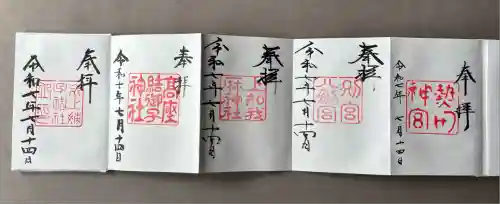 奉拝
熱田神宮
令和七年 七月十四日
奉拝
別宮八剣宮
令和七年七月十四日
奉拝
上知我麻神社
令和七年七月十四日
奉拝
高座結御子神社
令和七年 七月十四日
奉拝
令和七年七月十四日